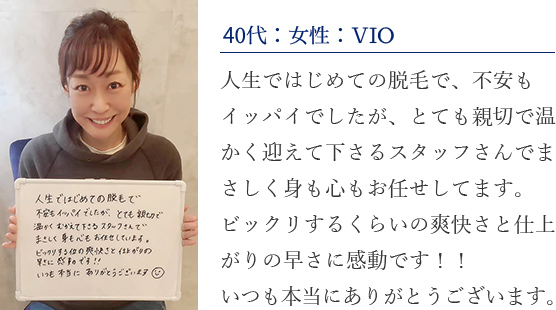 40代：女性：VIO
人生ではじめての脱毛で、不安も
イッパイでしたが、とても親切で温
かく迎えて下さるスタッフさんでま
さしく身も心もお任せしてます。
ビックリするくらいの爽快さと仕上
がりの早さに感動です！！
いつも本当にありがとうございます。
人生ではじめての脱毛で
不安もイッパイでしたが、とても親切で
温かくむかえて下さるスタッフさんで
まさしく身も心もお任せしています。
ビックリする位の爽快さと仕上がりの
早さに感動です!!
いつも本当にありがとうございます